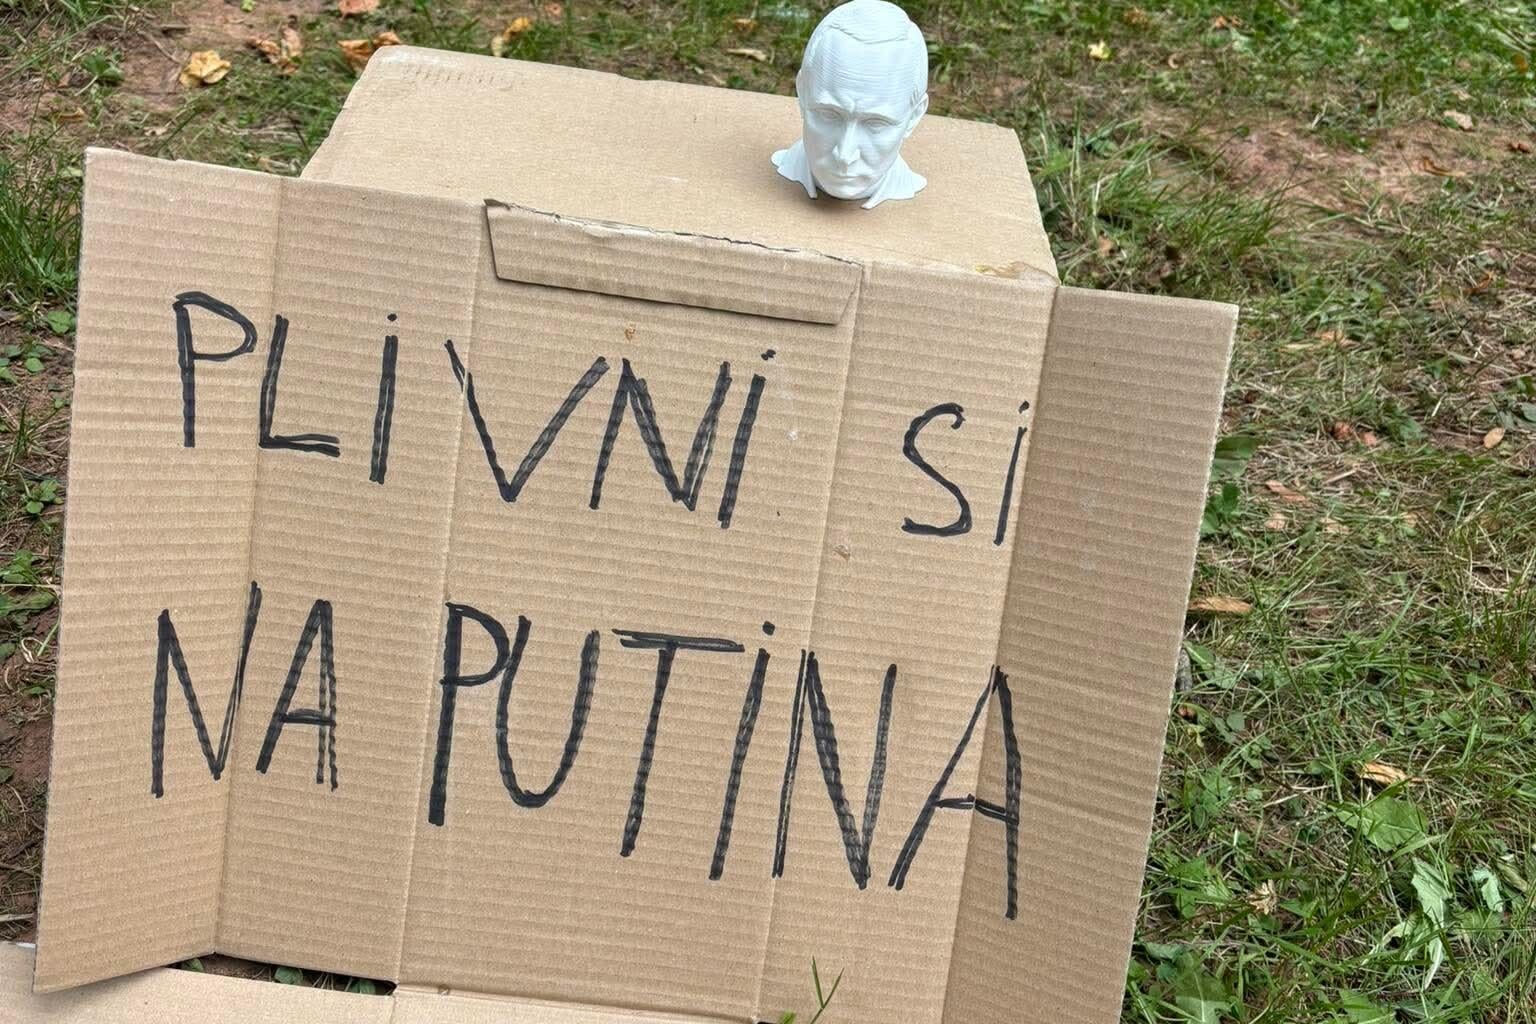 PLIVNI SI
NA PUTINA